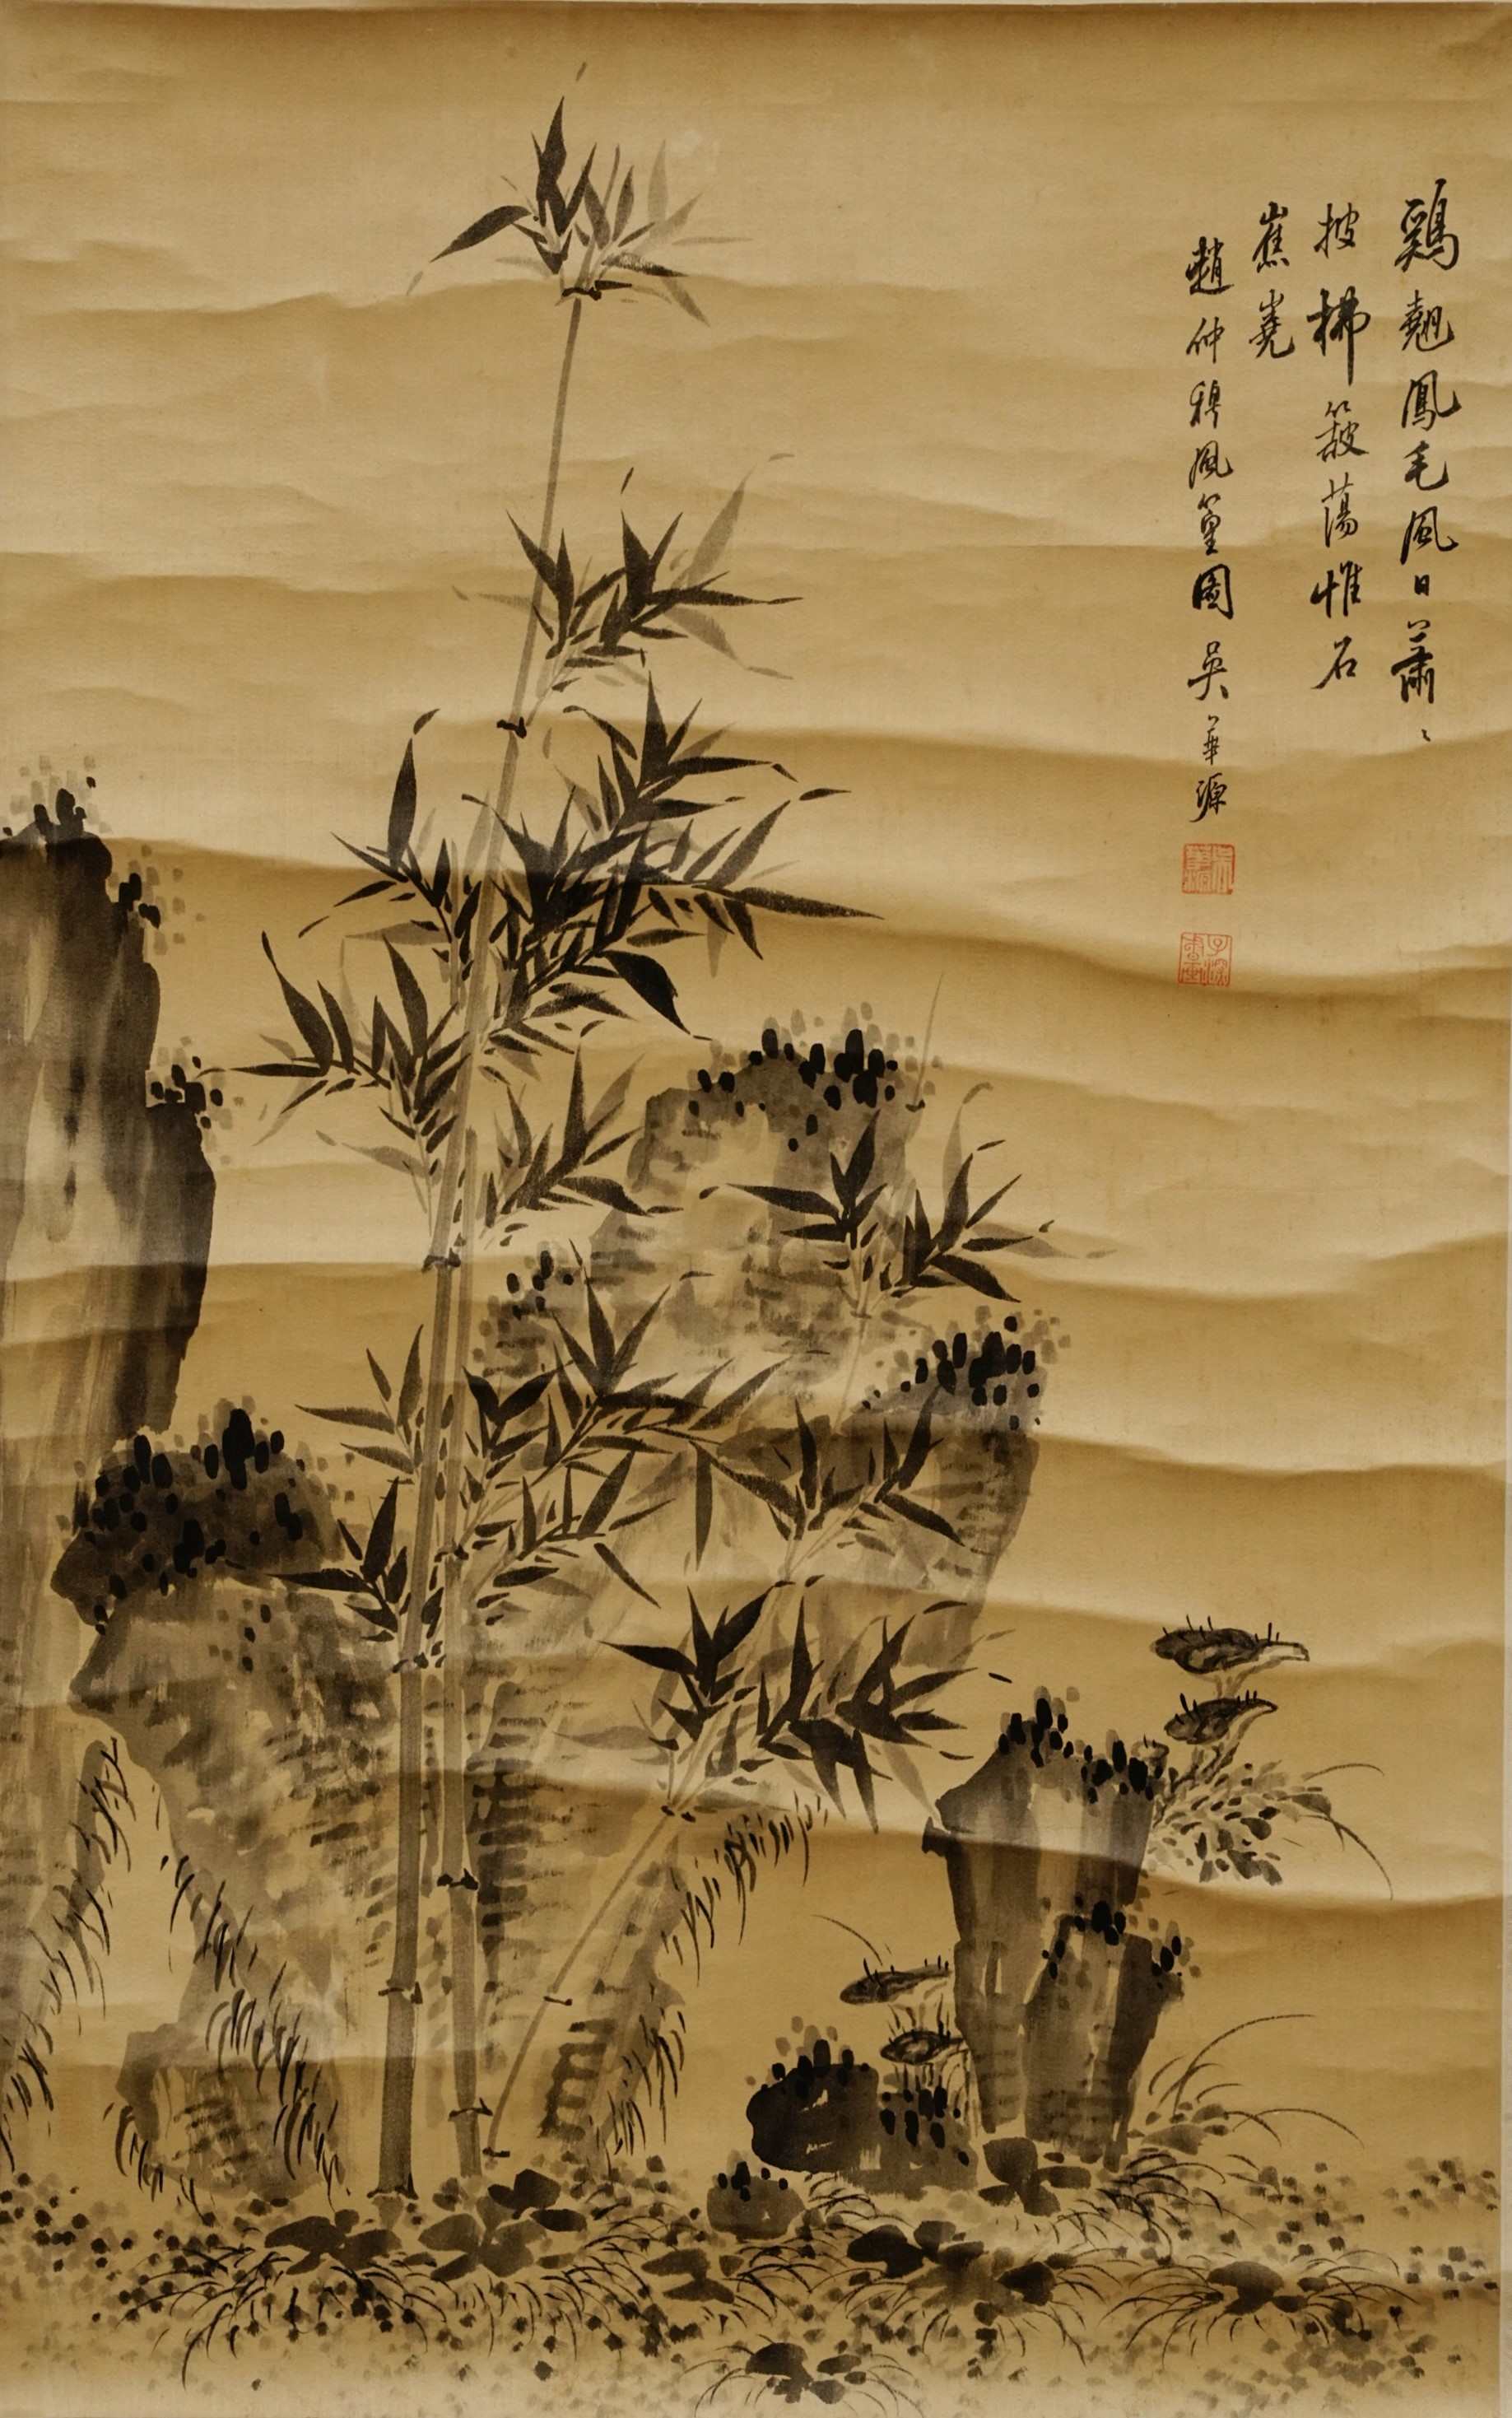 鷄翹鳳毛風日蕭〻
披拂簸蕩惟石
嶣嶢
趙仲穆風篁圖 吳華源